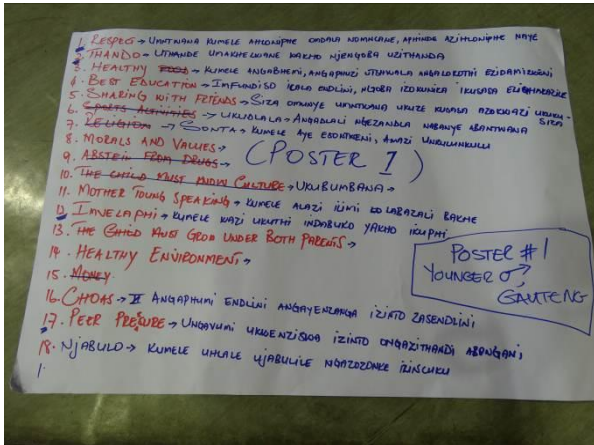 1. RESPECT → UMNTWANA KUMELE AHLONIPHE OMDALA NOMNCANE, APHINDE AZIHLONIPHE NAYE
2. THANDO → UTHANDE UMAKHELWANE WAKHO NJENGOBA UZITHANDA
3. HEALTHY FOOD → KUMELE ANGABHEMI, ANGAPHUZI UTSHWALA
4. BEST EDUCATION → IMFUNDISO ICALA ENDLINI, NJOBA IZOKUNIKA IKUSASA
5. SHARING WITH FRIENDS → SIZA OMUNYE UMNTWANA UKUZE KUSASA
6. SPORTS ACTIVITIES → UKUDLALA → ANGADLALI NGEZANDLA NABANYE ABANTWANA
SIZA
7. RELIGION → SONTA → KUMELE AYE ESONTWENI, AMAZI UNKULUNKULU
8. MORALS AND VALUES →
(POSTER 1)
9. ABSTEIN FROM DRUGS →
10. THE CHILD MUST KNOW CULTURE → UKUBUMBANA →
11. MOTHER TOUNG SPEAKING → KUMELE ALAZI ILIMI LABAZALI BAKHE
12. IMVELAPHI → KUMELE WAZI UKUTHI INDABUKO YAKHO IKUPHI
13. THE CHILD MUST GROW UNDER BOTH PARENTS →
14. HEALTHY ENVIRONMENT →
15. MONEY
16. CHOAS → ANGAPHUMI ENDLINI ANGAYENZANGA IZINTO ZASENDLINI
17. PEER PRESURE → UNGAVUMI UKWENZISWA IZINTO ONGAZITHANDI ABANGANI
18. NJABULO → KUMELE UHLALE UJABULILE NGAZOZONKE IZINSUKU
1.
POSTER #1
YOUNGER ♂
GAUTENG